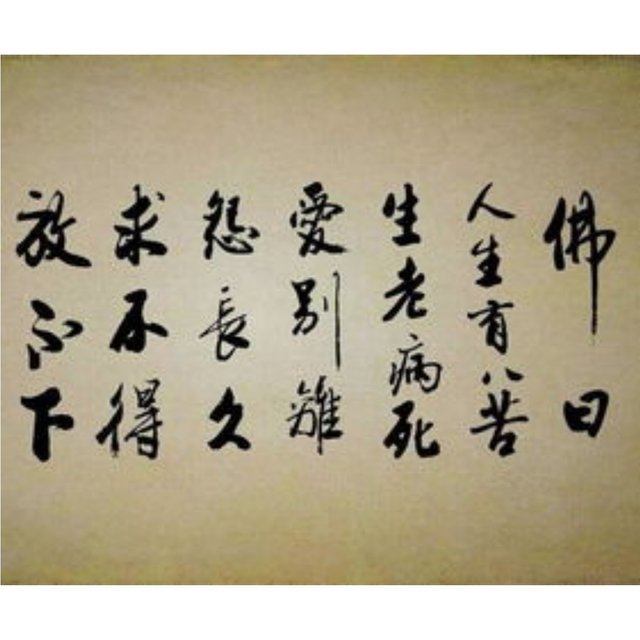 佛曰
人生有八苦
生老病死
愛別離
怨長久
求不得
放不下